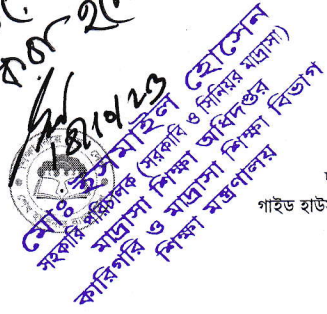 করা হ
18/10/23
মোঃ ইসমাইল হোসেন
সহকারি পরিচালক (সরকারি ও সিনিয়র মাদ্রাসা)
মাদ্রাসা শিক্ষা অধিদপ্তর
কারিগরি ও মাদ্রাসা শিক্ষা বিভাগ
শিক্ষা মন্ত্রণালয়
গাইড হাউ